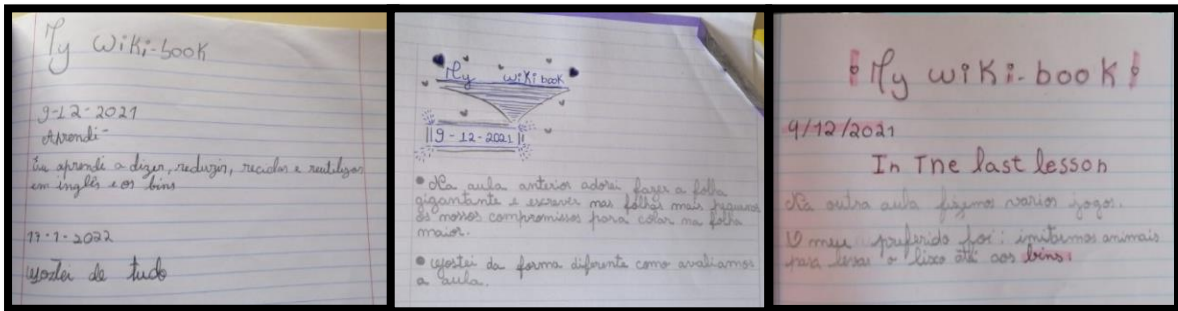 My wiki-book
9-12-2021
Aprendi
Eu aprendi a dizer, reduzir, reciclar e reutilizar
em inglês e os bins
11-1-2022
Gostei de tudo
My wiki book
9-12-2021
• Na aula anterior adorei fazer a folha
gigantante e escrever nas folhas mais pequenas
os nossos compromissos para colar na folha
maior.
• Gostei da forma diferente como avaliamos
a aula.
!My wiki-book!
9/12/2021
In The last lesson
Na outra aula fizemos varios jogos.
O meu preferido foi: imitarmos animais
para levar o lixo até aos bins.